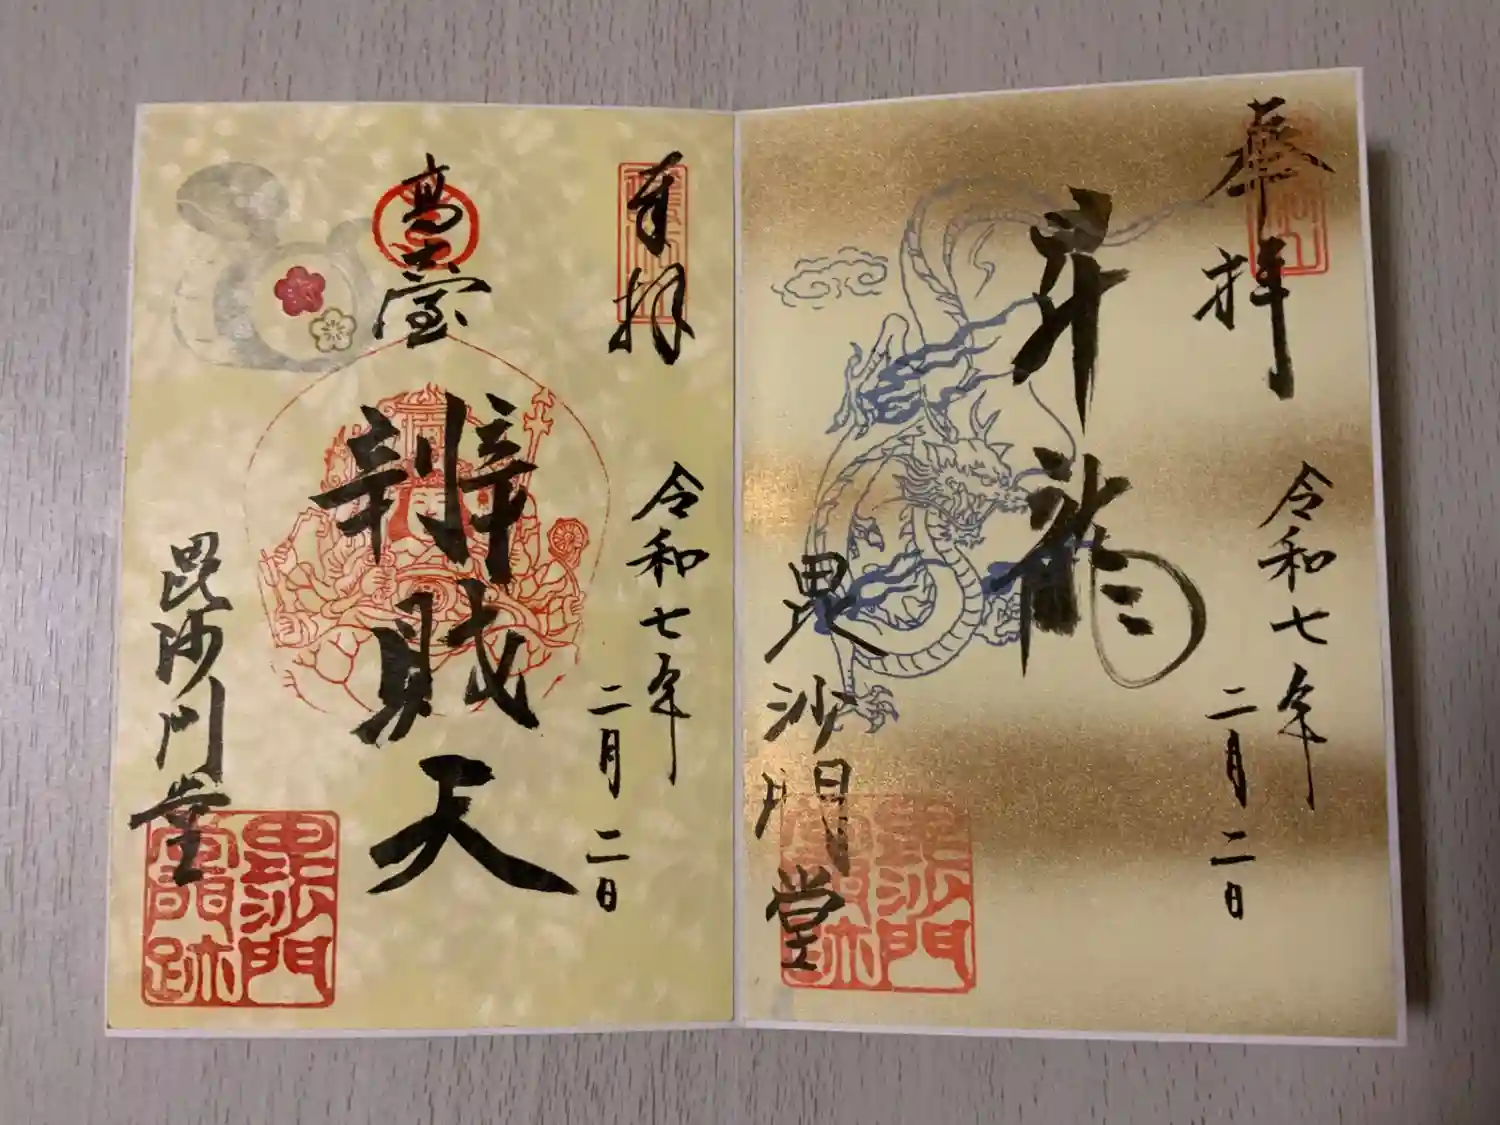 奉拝
令和七年
二月二日
昇龍
毘沙門堂
毘沙門
堂門跡
奉拝
令和七年
二月二日
高臺
辨財天
毘沙門堂
毘沙門
堂門跡